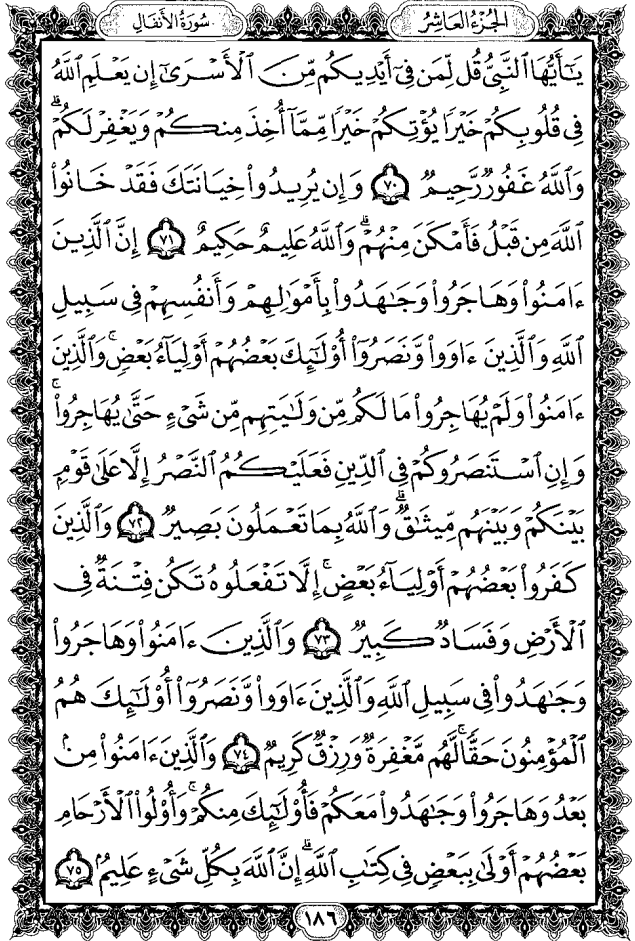 الجُزْءُ العَاشِرُ
سُورَةُ الأَنفَالِ
يَٰٓأَيُّهَا ٱلنَّبِيُّ قُل لِّمَن فِيٓ أَيْدِيكُم مِّنَ ٱلْأَسْرَىٰٓ إِن يَعْلَمِ ٱللَّهُ
فِي قُلُوبِكُمْ خَيْرًا يُؤْتِكُمْ خَيْرًا مِّمَّآ أُخِذَ مِنكُمْ وَيَغْفِرْ لَكُمْۗ
وَٱللَّهُ غَفُورٌ رَّحِيمٌ ٧٠ وَإِن يُرِيدُوا۟ خِيَانَتَكَ فَقَدْ خَانُوا۟
ٱللَّهَ مِن قَبْلُ فَأَمْكَنَ مِنْهُمْۗ وَٱللَّهُ عَلِيمٌ حَكِيمٌ ٧١ إِنَّ ٱلَّذِينَ
ءَامَنُوا۟ وَهَاجَرُوا۟ وَجَٰهَدُوا۟ بِأَمْوَٰلِهِمْ وَأَنفُسِهِمْ فِي سَبِيلِ
ٱللَّهِ وَٱلَّذِينَ ءَاوَوا۟ وَّنَصَرُوٓا۟ أُو۟لَٰٓئِكَ بَعْضُهُمْ أَوْلِيَآءُ بَعْضٍۚ وَٱلَّذِينَ
ءَامَنُوا۟ وَلَمْ يُهَاجِرُوا۟ مَا لَكُم مِّن وَلَٰيَتِهِم مِّن شَيْءٍ حَتَّىٰ يُهَاجِرُوا۟ۚ
وَإِنِ ٱسْتَنصَرُوكُمْ فِي ٱلدِّينِ فَعَلَيْكُمُ ٱلنَّصْرُ إِلَّا عَلَىٰ قَوْمٍۭ
بَيْنَكُمْ وَبَيْنَهُم مِّيثَٰقٌۗ وَٱللَّهُ بِمَا تَعْمَلُونَ بَصِيرٌ ٧٢ وَٱلَّذِينَ
كَفَرُوا۟ بَعْضُهُمْ أَوْلِيَآءُ بَعْضٍۚ إِلَّا تَفْعَلُوهُ تَكُن فِتْنَةٌ فِي
ٱلْأَرْضِ وَفَسَادٌ كَبِيرٌ ٧٣ وَٱلَّذِينَ ءَامَنُوا۟ وَهَاجَرُوا۟
وَجَٰهَدُوا۟ فِي سَبِيلِ ٱللَّهِ وَٱلَّذِينَ ءَاوَوا۟ وَّنَصَرُوٓا۟ أُو۟لَٰٓئِكَ هُمُ
ٱلْمُؤْمِنُونَ حَقًّاۚ لَّهُم مَّغْفِرَةٌ وَرِزْقٌ كَرِيمٌ ٧٤ وَٱلَّذِينَ ءَامَنُوا۟ مِنۢ
بَعْدُ وَهَاجَرُوا۟ وَجَٰهَدُوا۟ مَعَكُمْ فَأُو۟لَٰٓئِكَ مِنكُمْۚ وَأُو۟لُوا۟ ٱلْأَرْحَامِ
بَعْضُهُمْ أَوْلَىٰ بِبَعْضٍ فِي كِتَٰبِ ٱللَّهِۗ إِنَّ ٱللَّهَ بِكُلِّ شَيْءٍ عَلِيمٌۢ ٧٥
١٨٦